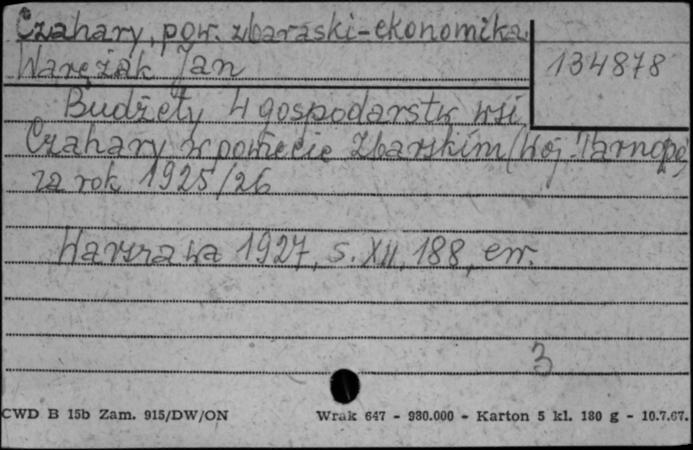 Czahary, pow. zbaraski - ekonomika.
Warężak Jan
134878
Budżety 4 gospodarstw wsi
Czahary w powiecie Zbarskim (Woj. Tarnopol)
za rok 1925/26
Warszawa 1927, s. XII, 188, err.
3
CWD B 15b Zam. 915/DW/ON Wrak 647 - 980.000 - Karton 5 kl. 180 g - 10.7.67.